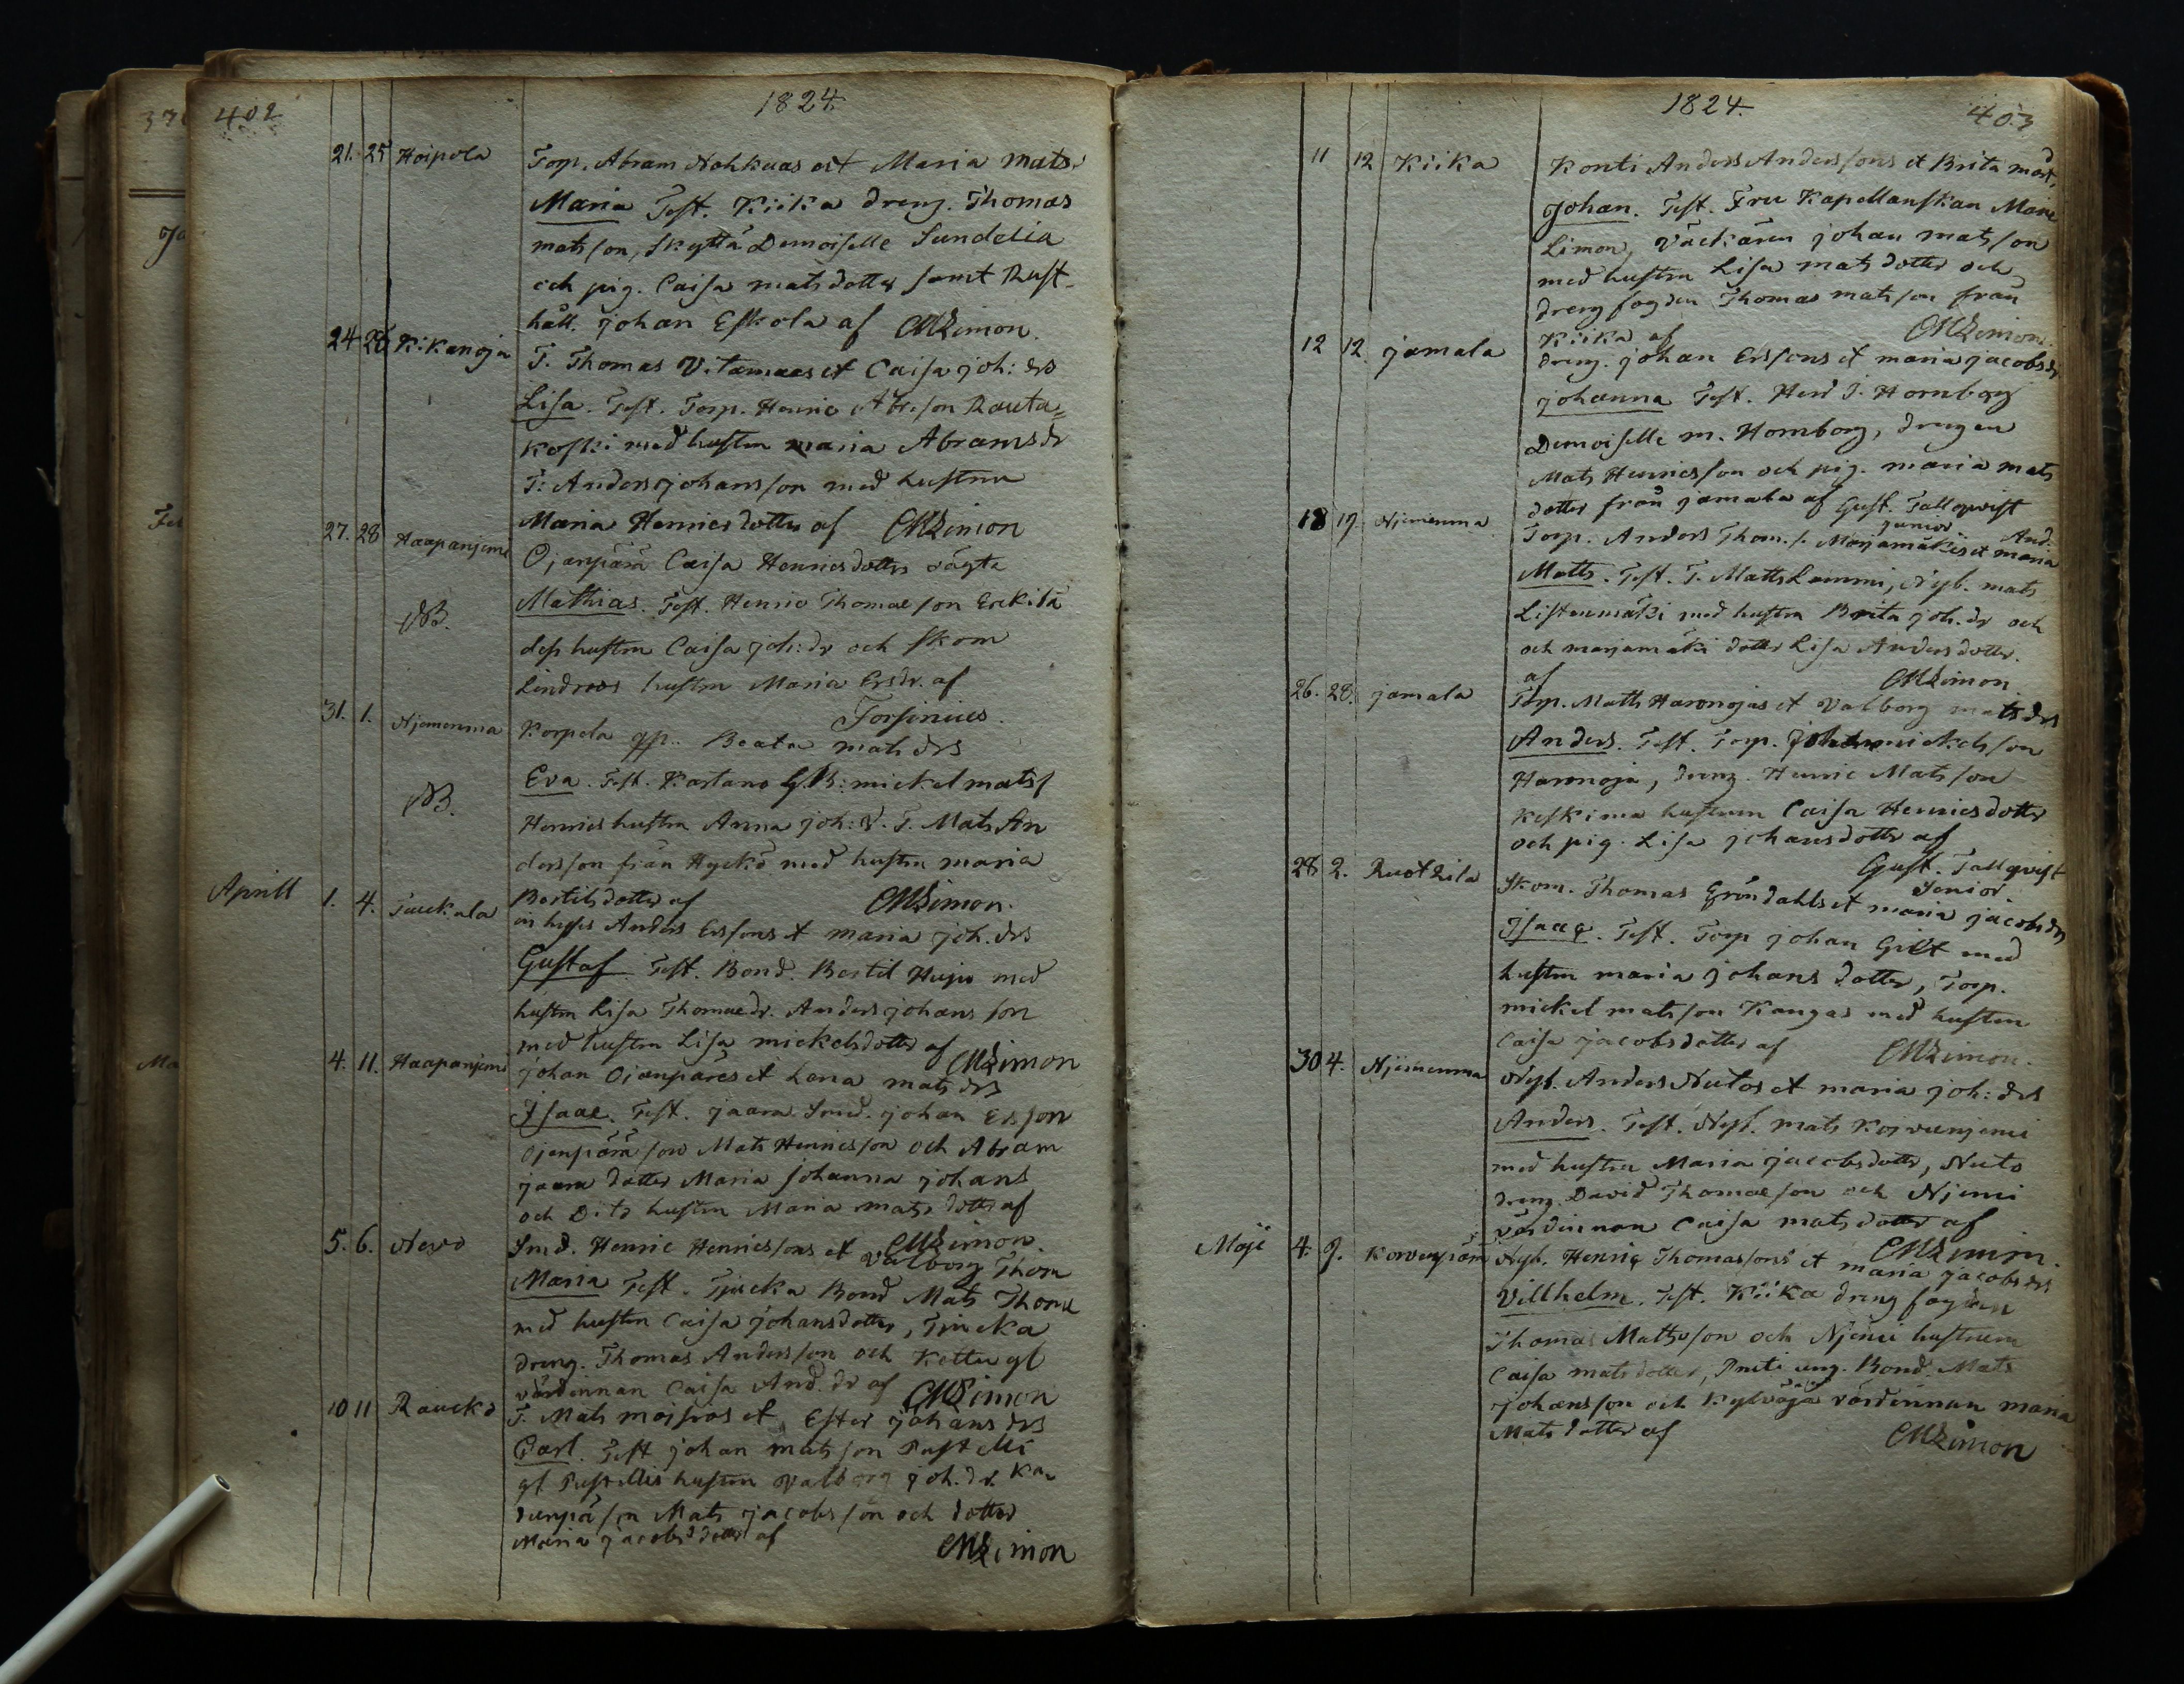 402
1824
21. 25 Hoipola Torp. Abram Nohkuas et Maria mats.
Maria Test. Kiika dreng. Thomas
matsson, Skyttä Demoiselle Sundelia
och pig. Caisa matsdotter samt Rust-
håll. Johan Eskola af CMLimon.
24 26 Kikanoja T. Thomas Vitamaas et Caisa joh: drs
Lisa. Test. Torp. Henric Abr.son Rauta=
koski med hustru maria Abramsdr
T: Anders johansson med hustru
Maria Henricsdotter af CMLimon
27. 28 Haapanjemi Ojanpärä Caisa Henricsdotters oägta
NB. Mathias. Test. Henric Thomasson Erckilä
dess hustru Caisa joh:dr och Skom
Lindroos hustru Maria Ersdr. af
Forsinius.
31. 1. Njemenma Korpela qp.. Beata mats drs
NB. Eva. Test. Kartano G.B: mickel mats s
Henrics hustru Anna joh: d. T. Mats An
dersson från Hyckö med hustru maria
Bertilsdotter af CMLimon.
Aprill 1. 4. Tuckala inhyses Anders Ersons et maria joh. drs
Gustaf Test. Bond. Bertil Hujo med
hustru Lisa Thomasdr. Anders johansson
med hustru Lisa mickelsdotter af CMLimon
4. 11. Haapanjemi johan Ojanpäres et Lena mats drs
Isaac. Test. jaara Smed. johan Erson
Ojenpärä son Mats Henricsson och Abram
jaara dotter Maria johanna johans
och Dito hustru Maria mats dotter af
CMLimon.
5. 6. Nero Smd. Henric Henricssons et Valborg Thom
Maria Test. Tjucka Bond Mats Thome
med hustru Caisa johansdotter, Tjucka
dreng. Thomas Andersson och Kettu gl
värdinnan Caisa And. dr af CMLimon
10 11 Rauckö T. Mats moisios et Ester johans drs
Carl. Test johan matsson Pustelli
gl Pustellis hustru Valborg joh. dr. Ka-
dunpä son Mats jacobsson och dotter
Maria jacobsdotter af CMLimon
1824.
403
11 12 Kiika Konti Anders Anderssons et Brita mart. d
Johan. Test. Fru Kapellanskan Marie
Limon, Väckären johan matsson
med hustru Lisa mats dotter och
drengfogden Thomas matsson från
Kiika af CMLimon.
12 12. jamala dreng. johan Ersons et maria jacobs dr
johanna Test. Herr J. Hornborg
Demoiselle m. Hornborg, drengen
Mats Henricsson och pig. maria mats
dotter från jamala af Gust. Tallqwist
junior
18 19. Njemenma Torp. Anders Thom. s. Marjamäkis et maria And.
Matts. Test. T. Matts Lammi, Nyb. mats
Listenmäki med hustru Brita joh. dr och
och marjamäki dotter Lisa Andersdotter.
af CMLimon
26. 28. jamala Torp. Matts Haronojas et Valborg mats drs
Anders. Test. Torp. Johan mickelsson
Haronoja, dreng. Henric Matsson
Keskima hustrun Caisa Henricsdotter
och pig. Lisa johansdotter af
Gust. Tallqvist
Senior
28 2. Ruothila Skom. Thomas Gröndahls et maria jacobs drs
Isaac. Test. Torp johan Gilt med
hustru maria johans dotter, Torp.
mickel matsson Kangas med hustru
Caisa jacobsdotter af CMLimon.
30 4. Njemenma Nyb. Anders Nutos et maria joh: drs
Anders. Test. Nyb. mats Koivunjemi
med hustru Maria jacobsdotter, Nuto
dreng. David Thomasson och Njemi
värdinnan Caisa mats dotter af
CMLimon.
Maji 4. 9. Korvenpää Nyb. Henric Thomassons et maria jacobs drs
Villhelm. Test. Kiika dreng fogden
Thomas Mattsson och Njemi hustrun
Caisa matsdotter, Pruti ung. Bond. Mats
johansson och Kylväjä värdinnan maria
Mats dotter af CMLimon